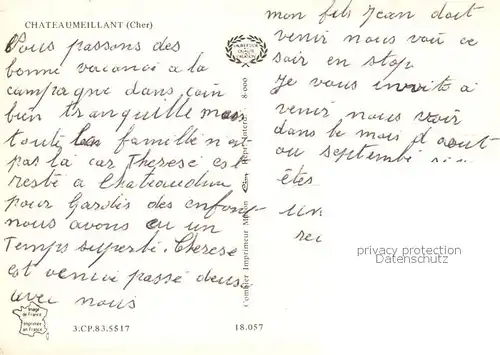 CHATEAUMEILLANT (Cher)
Nous passons des
bonne vacance a la
campagne dans coin
bien tranquille mais
toute la famille n'a
pas là car Therese est
resté a Chateaudun
pour Gardés des enfant
nous avons eu un
Temps superbe. Therese
est venue passé deux
avec nous
3.CP.83.5517
Combier Imprimeur Macon
8-000
18.057
mon fils Jean doit
venir nous voir ce
soir en stop
Je vous invite à
venir nous voir
dans le mois d'août
ou septembre si
êtes
un
privacy protection
Datenschutz
Image
de France
Imprimée
en France